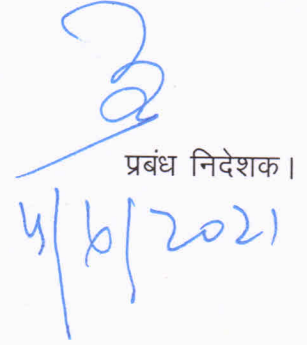 प्रबंध निदेशक।
4/6/2021